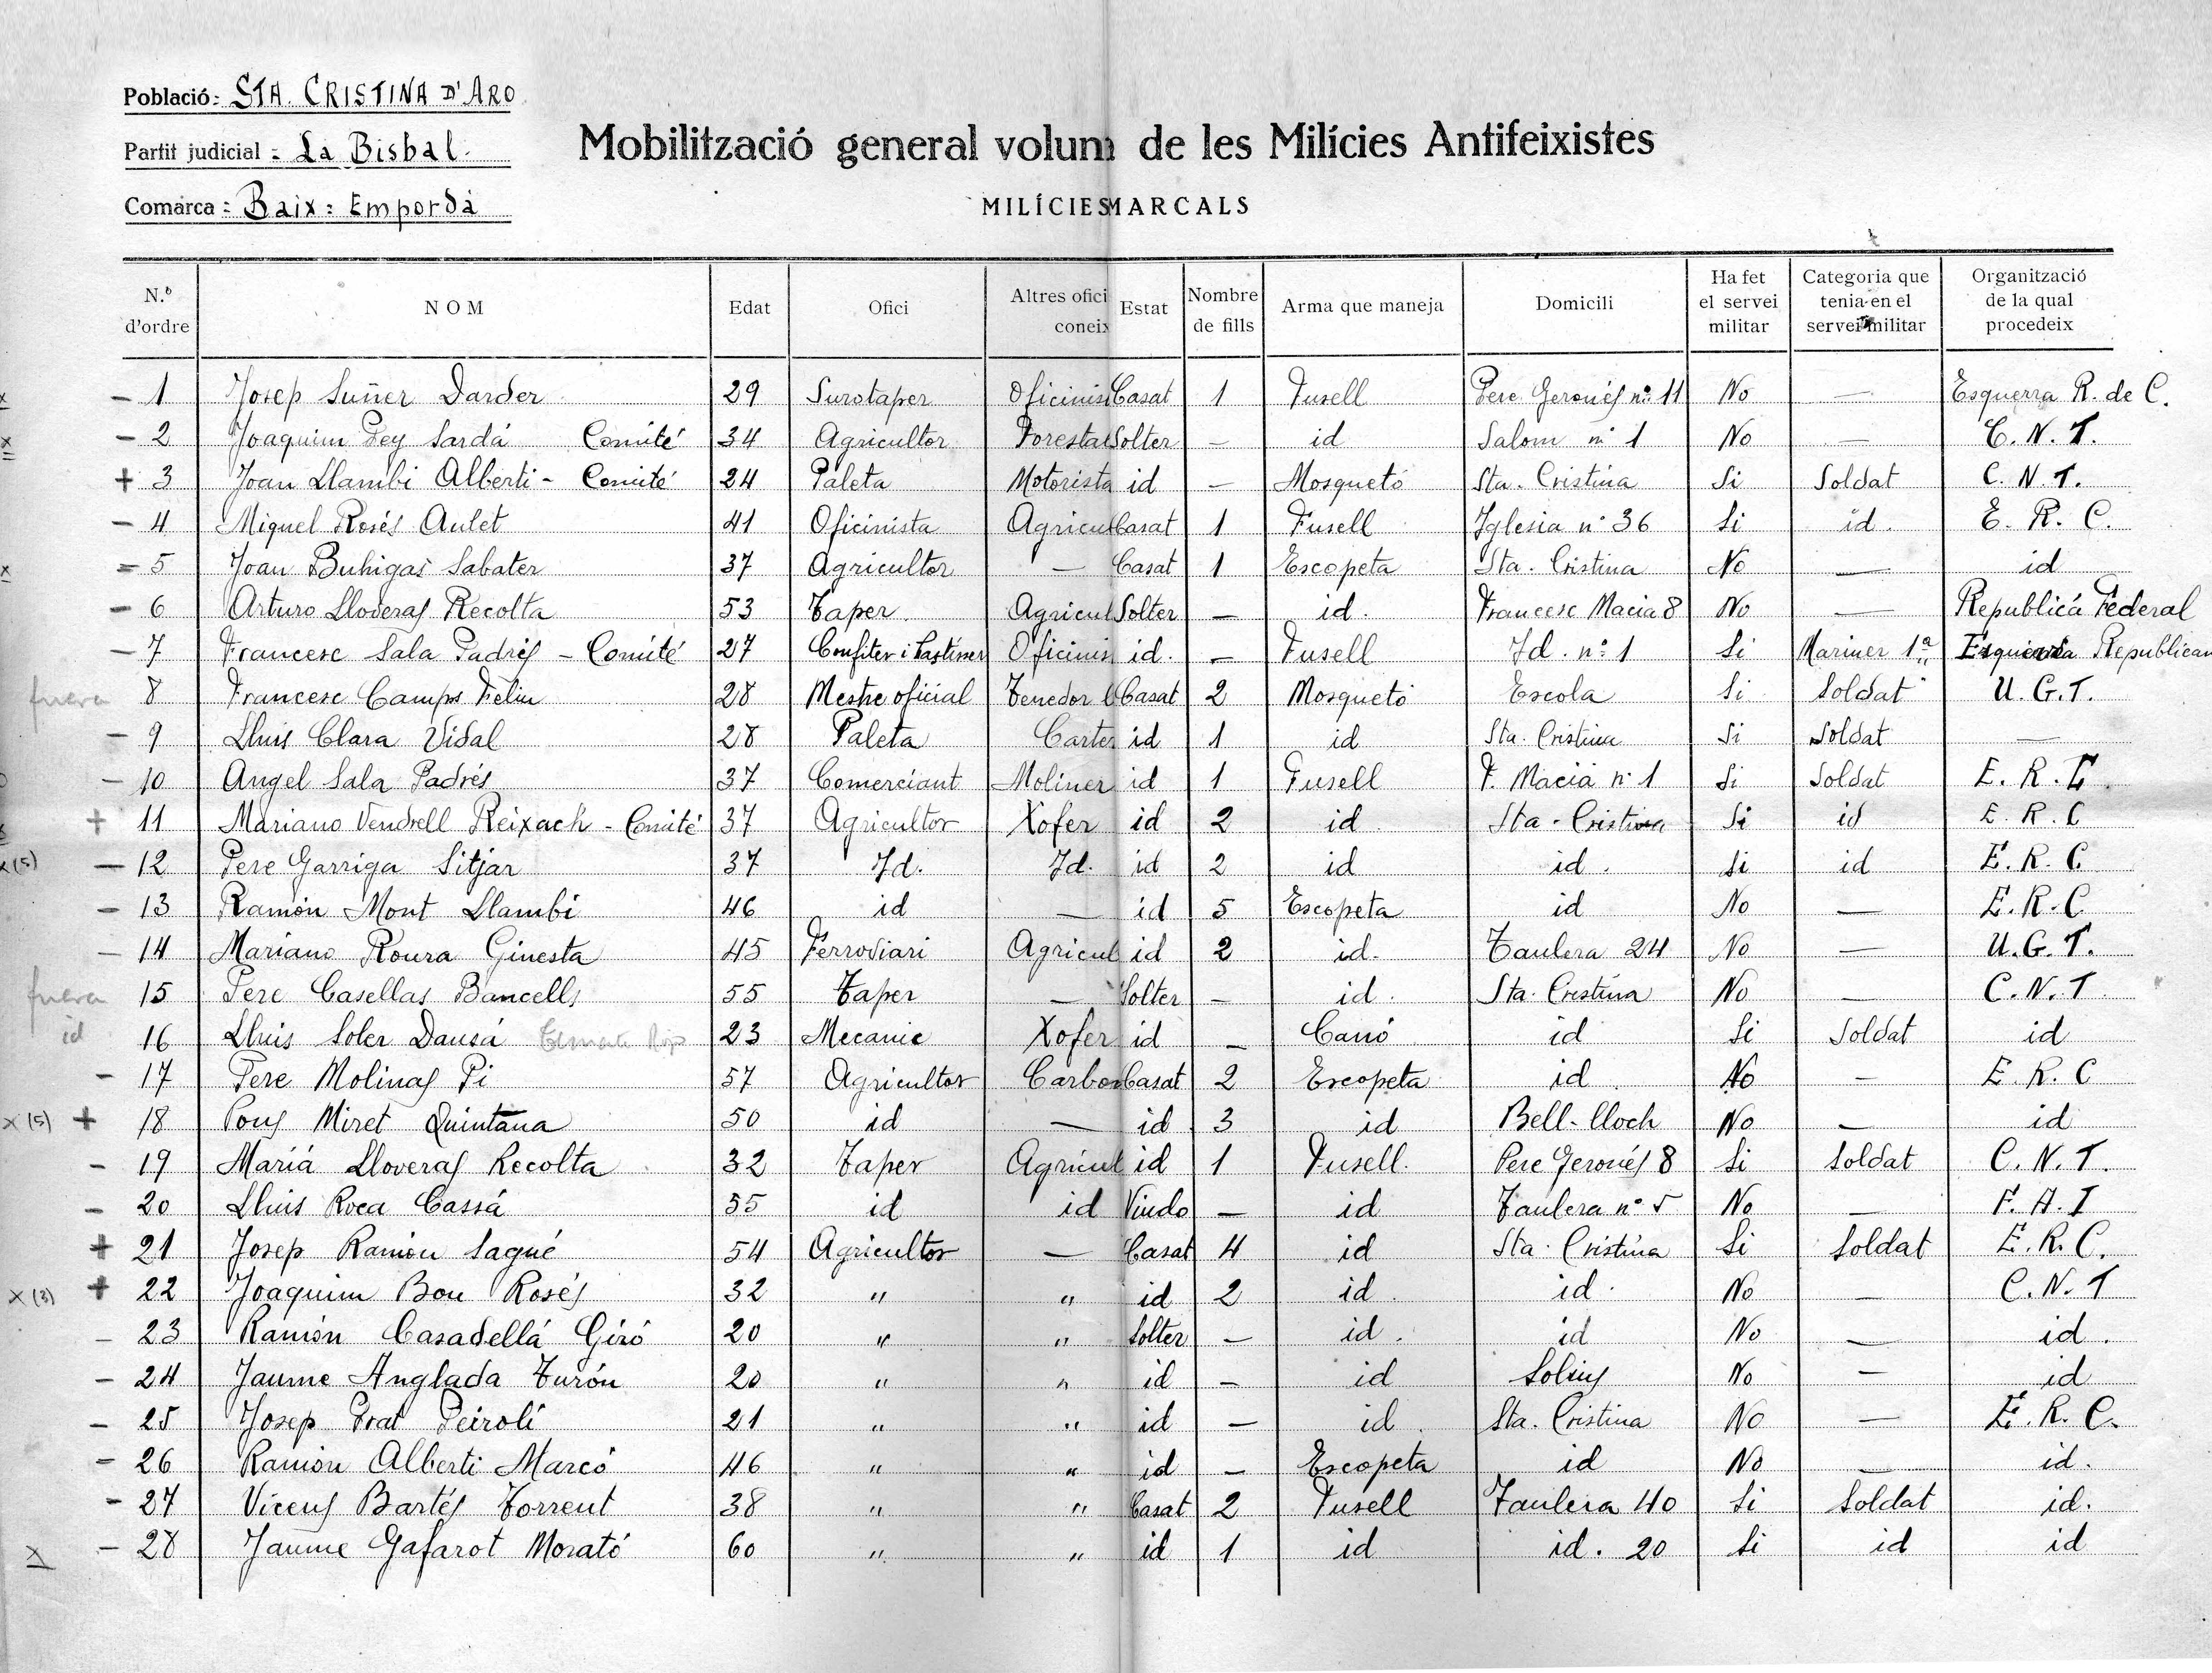 Població: STA. CRISTINA D'ARO
Partit judicial: La Bisbal
Comarca: Baix: Empordà
Mobilització general volum de les Milícies Antifeixistes
MILÍCIES MARCALS
N.º d'ordre NOM Edat Ofici Altres ofici coneix Estat Nombre de fills Arma que maneja Domicili Ha fet el servei militar Categoria que tenia en el servei militar Organització de la qual procedeix
x - 1 Josep Suñer Darder 29 Surotaper Oficinis Casat 1 Fusell Pere Geronés nº 11 No — Esquerra R. de C.
x - 2 Joaquim Pey Sardá Comité 34 Agricultor Forestal Solter — id Salom nº 1 No — C.N.T.
+ 3 Joan Llambi Alberti - Comité 24 Paleta Motorista id — Mosquetó Sta. Cristina Si Soldat C.N.T.
- 4 Miquel Rosés Aulet 41 Oficinista Agricul Casat 1 Fusell Iglesia nº 36 Si id. E.R.C.
x - 5 Joan Buhigas Sabater 37 Agricultor — Casat 1 Escopeta Sta. Cristina No — id
- 6 Arturo Lloveras Recolta 53 Taper Agricul Solter — id. Francesc Macia 8 No — Republicá Federal
- 7 Francesc Sala Padrés - Comité 27 Confiter i Pastisser Oficinis id. — Fusell Id. nº 1 Si Mariner 1ª Esquerra Republican
fuera 8 Francesc Camps Feliu 28 Mestre oficial Tenedor l Casat 2 Mosquetó Escola Si Soldat U.G.T.
- 9 Lluis Clara Vidal 28 Paleta Carter id 1 id Sta. Cristina Si Soldat —
- 10 Angel Sala Padrés 37 Comerciant Moliner id 1 Fusell F. Macia nº 1 Si Soldat E.R.C.
+ 11 Mariano Vendrell Reixach - Comité 37 Agricultor Xofer id 2 id Sta. Cristina Si id E.R.C
x (5) - 12 Pere Garriga Sitjar 37 Id. Id. id 2 id id. Si id E.R.C.
- 13 Ramón Mont Llambi 46 id — id 5 Escopeta id No — E.R.C
- 14 Mariano Roura Ginesta 45 Ferroviari Agricul id 2 id. Taulera 24 No — U.G.T.
fuera 15 Pere Casellas Bancells 55 Taper — Solter — id. Sta. Cristina No — C.N.T.
id 16 Lluis Soler Dausá 23 Mecanic Xofer id — Canó id Si Soldat id
- 17 Pere Molinas Pi 57 Agricultor Carbon Casat 2 Escopeta id No — E.R.C
x (5) + 18 Pons Miret Quintana 50 id — id 3 id Bell-lloch No — id
- 19 Mariá Lloveras Recolta 32 Taper Agricul id 1 Fusell. Pere Geronés 8 Si Soldat C.N.T.
- 20 Lluis Roca Cassá 35 id id Viudo — id Taulera nº 5 No — F.A.I
+ 21 Josep Ramion Sagué 54 Agricultor — Casat 4 id Sta. Cristina Si Soldat E.R.C.
x (3) + 22 Joaquim Bou Rosés 32 " " id 2 id. id. No — C.N.T
- 23 Ramón Casadellá Giró 20 " " Solter — id. id No — id.
- 24 Jaume Anglada Turón 20 " " id — id Solius No — id
- 25 Josep Prat Peirolí 21 " " id — id. Sta. Cristina No — E.R.C.
- 26 Ramón Alberti Marcó 46 " " id — Escopeta id No — id.
- 27 Vicens Bartés Torrent 38 " " Casat 2 Fusell Taulera 40 Si Soldat id.
x - 28 Jaume Gafarot Morató 60 " " id 1 id id. 20 Si id id